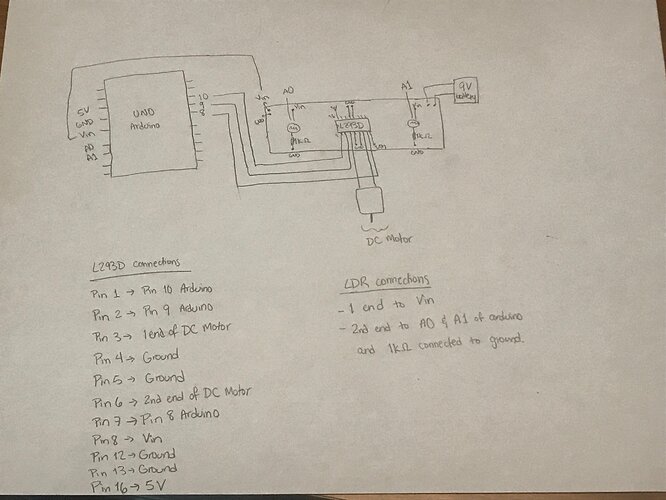 A0
A1
9V
battery
Vin
Vin
10
9
8
UNO
Arduino
5V
GND
Vin
A0
A1
L293D
1kΩ
1kΩ
Vin
GND
GND
DC Motor
L293D connections
Pin 1 → Pin 10 Arduino
Pin 2 → Pin 9 Arduino
Pin 3 → 1 end of DC Motor
Pin 4 → Ground
Pin 5 → Ground
Pin 6 → 2nd end of DC Motor
Pin 7 → Pin 8 Arduino
Pin 8 → Vin
Pin 12 → Ground
Pin 13 → Ground
Pin 16 → 5V
LDR connections
- 1 end to Vin
- 2nd end to A0 & A1 of arduino
and 1kΩ connected to ground.